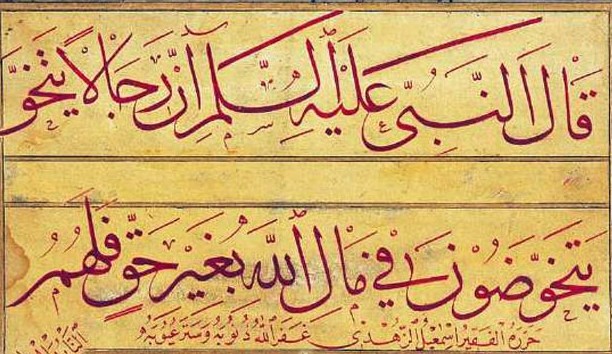 قَالَ النَّبِىُّ عَلَيْهِ السَّلَامُ اِنَّ رِجَالًا يَتَخَوَّ
يَتَخَوَّضُونَ فِي مَالِ اللّٰهِ بِغَيْرِ حَقٍّ فَلَهُمُ
حرره الفقير اسمعيل الزهدى غفر الله ذنوبه وستر عيوبه